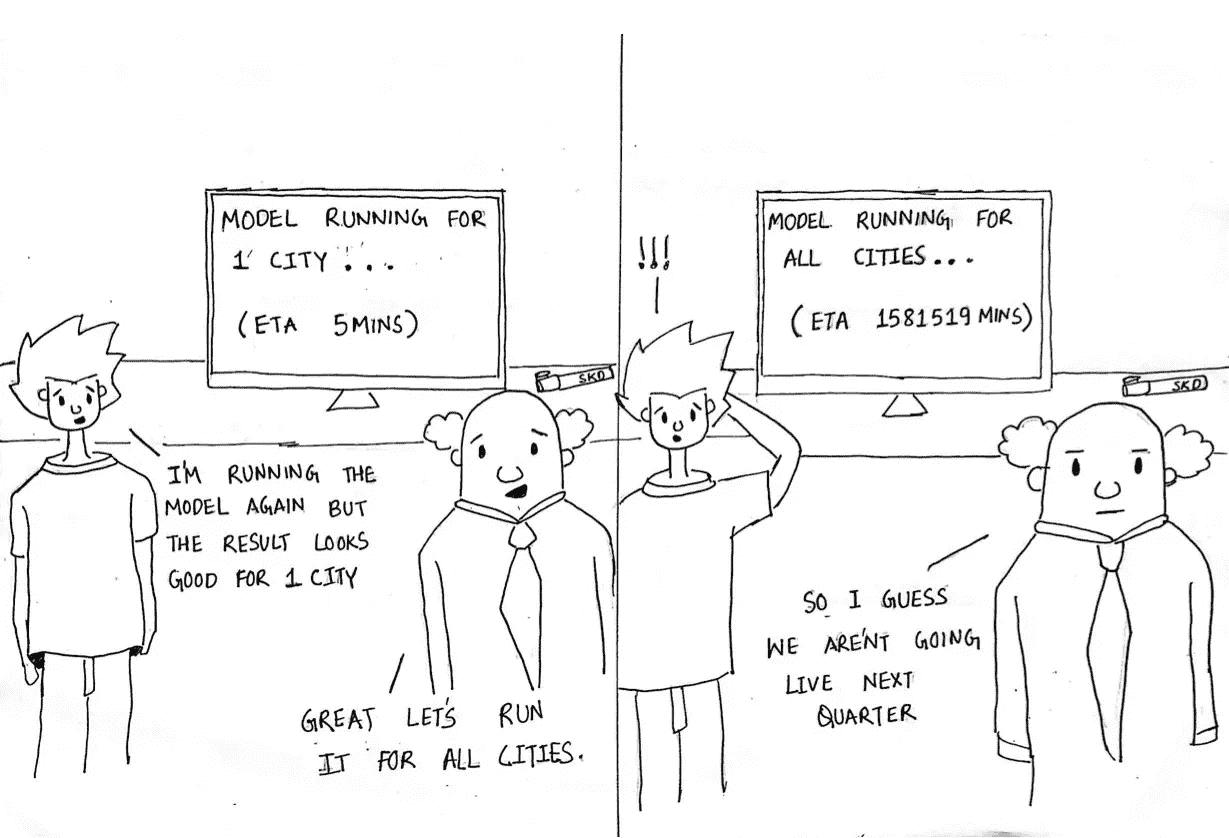 MODEL RUNNING FOR
1 CITY ...
(ETA 5MINS)
SKD
I'M RUNNING THE
MODEL AGAIN BUT
THE RESULT LOOKS
GOOD FOR 1 CITY
GREAT LET'S RUN
IT FOR ALL CITIES.
!!!
MODEL RUNNING FOR
ALL CITIES...
(ETA 1581519 MINS)
SKD
SO I GUESS
WE AREN'T GOING
LIVE NEXT
QUARTER